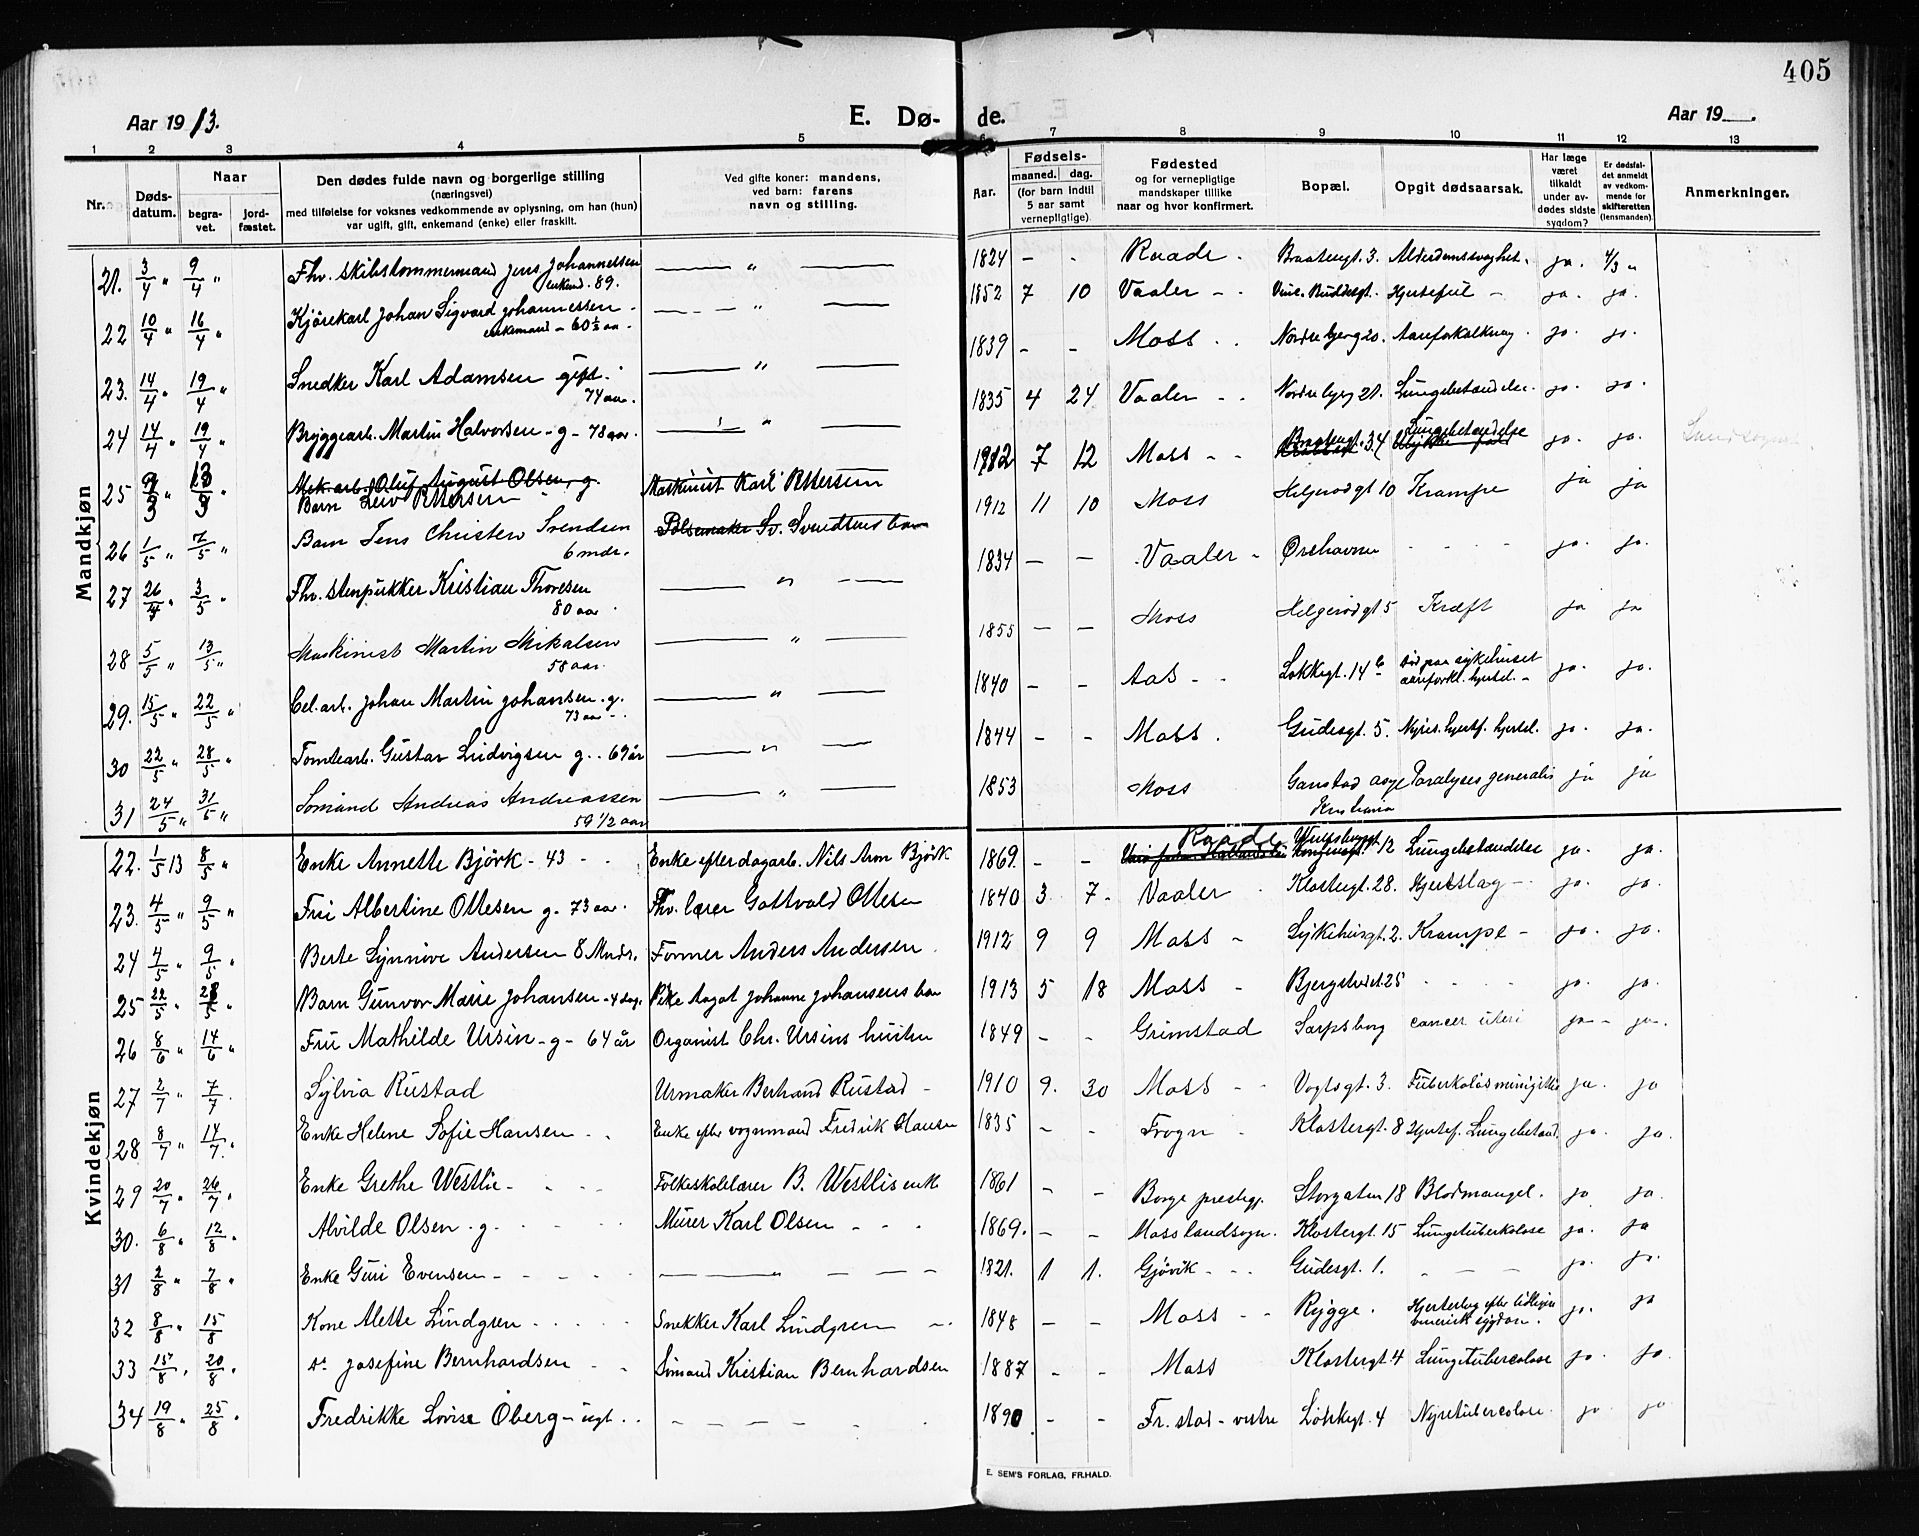 405
Aar 1913.
E. Dø-
de.
Aar 19 .
1 2 3 4 5 6 7 8 9 10 11 12 13
Nr.
Døds-
datum.
Naar
begra-
vet.
jord-
fæstet.
Den dødes fulde navn og borgerlige stilling
(næringsvei)
med tilføielse for voksnes vedkommende av oplysning, om han (hun)
var ugift, gift, enkemand (enke) eller fraskilt.
Ved gifte koner: mandens,
ved barn: farens
navn og stilling.
Aar.
Fødsels-
maaned. dag.
(for barn indtil
5 aar samt
vernepligtige).
Fødested
og for vernepligtige
mandskaper tillike
naar og hvor konfirmert.
Bopæl.
Opgit dødsaarsak.
Har læge
været
tilkaldt
under av-
dødes sidste
sygdom?
Er dødsfal-
det anmeldt
av vedkom-
mende for
skifteretten
(lensmanden)
Anmerkninger.
Mandkjøn
21. 3/4 " 9/4 " Fhv. Skibstømmermand Jens Johannessen enkem. 89. — " — 1824 - - Raade. Braatengt. 3. Alderdomssvaghet. ja. 4/3 "
22 10/4 " 16/4 " Kjørekarl Johan Sigvard Johannessen - enkemand - 60 ½ aar. — " — 1852 7 10 Vaaler - - Hjertefeil - ja. ja.
23. 14/4 " 19/4 " Snedker Karl Adamsen gift. 74 aar. — " — 1839 - - Moss . . Nordre byeg 20. Aareforkalkning ja. ja.
24 14/4 " 19/4 " Bryggearb. Martin Halvorsen - g - 78 aar. — " — 1835 4 24 Vaaler - - Nordre byeg 21. Lungebetændelse. ja. ja.
25 9/3 " 13/3 " Mek. arb. Oluf August Olsen, g. Barn Leiv Pettersen Maskinist Karl Pettersen 1912 7 12 Moss - - Braatengt. 34 Lungebetændelse ja. ja.
26 1/5 " 7/5 " Barn Jens Christen Svendsen 6 mdr. Pølsemaker Sv. Svendsens barn 1912 11 10 Moss Helgerødgt 10 Krampe ja ja
27 26/4 " 3/5 " Fhv. stenpukker Kristian Thoresen 80 aar. — " — 1834 - - Vaaler - Ørehavnen - - - ja. ja.
28 5/5 " 13/5 " Maskinist Martin Mikalsen 58 aar. — " — 1855 - - Moss Helgerødgt 5 Kræft ja ja
29. 15/5 " 22/5 " Cel. arb. Johan Martin Johansen. g. 73 aar - . — " — 1840 - - Aas - - Løkkegt. 14 b død paa sykehuset aareforkl. hjertel. - ja. ja.
30 22/5 " 28/5 " Tomtearb. Gustav Ludvigsen g. . 69 år — " — 1844 - - Moss . Gudesgt. 5. Nyres. hjertf. hjertel. ja. ja.
31 24/5 " 31/5 " Sømand Andreas Andreassen 59 1/2 aar — " — 1853 Moss Gaustad asyl Kristiania Paralyses generalis ja ja
Kvindekjøn
22. 1/5 13 8/5 " Enke Annette Bjørk - 43 - - Enke efter dagarb. Nils Aron Bjørk 1869. - - Raade 12 Lungebetændelse ja. ja.
23. 4/5 " 9/5 " Fru Albertine Ottesen g. 73 aar. Fhv. lærer Gottvald Ottesen 1840 3 7. Vaaler . Klostergt. 28. Hjerteslag - . ja. ja.
24 4/5 " 9/5 " Berte Synnøve Andersen 8 Mndr. Former Anders Andersen . 1912 9 9 Moss - Sykehusgt. 2. Krampe - ja. ja.
25 22/5 " 28/5 " Barn Gunvor Marie Johansen - 4 dag. Pike Aagot Johanne Johansens barn 1913 5 18 Moss - 25 - - - ja. ja.
26 8/6 " 14/6 " Fru Mathilde Ursin - g - 64 år Organist Chr. Ursins hustru 1849 - - Grimstad Sarpsborg cancer uteri ja - ja.
27 2/7 " 7/7. Sylvia Rustad Urmaker Bertrand Rustad - 1910 9. 30 Moss - - Vogtsgt. 3. ja. ja
28 8/7 " 14/7. Enke Helene Sofie Hansen . . Enke efter vognmand Fredrik Hansen 1835 - - Frogn - Klostergt. 8 Hjertef. Lungebetænd. ja. ja.
29 20/7 " 26/7 " Enke Grethe Westlie - - - Folkeskolelærer B. Westlis enke 1861 - - Borge prestegj. Storgaten 18 Blodmangel. ja ja.
30. 6/8 " 12/8 " Alvilde Olsen . g. - - - Murer Karl Olsen - - - 1869. - - Moss landsogn. Klostergt. 15 Lungetuberkolose ja. ja
31 2/8 " 7/8 " Enke Guri Evensen - - - - — " — — — 1821. 1 1. Gjøvik - - - Gudesgt. 1. - - - ja. ja.
32 8/8 " 15/8 Kone Alette Lindgren . . . . . Snekker Karl Lindgren - . 1848 - - Moss - - Rygge . Hjerteslag efter sygdom. ja. ja
33 15/8 . 20/8 . do Josefine Bernhardsen - - Sømand Kristian Bernhardsen 1887 - - Moss Klostergt. 4 Lungetubercolose ja. ja.
34 19/8 " 25/8 . Fredrikke Lovise Öberg - ugt. . - - - - - - 1890 - - Fr. stad - vestre Løkkegt. 4 Nyretubercolose. ja ja
E. SEM'S FORLAG, FR.HALD.